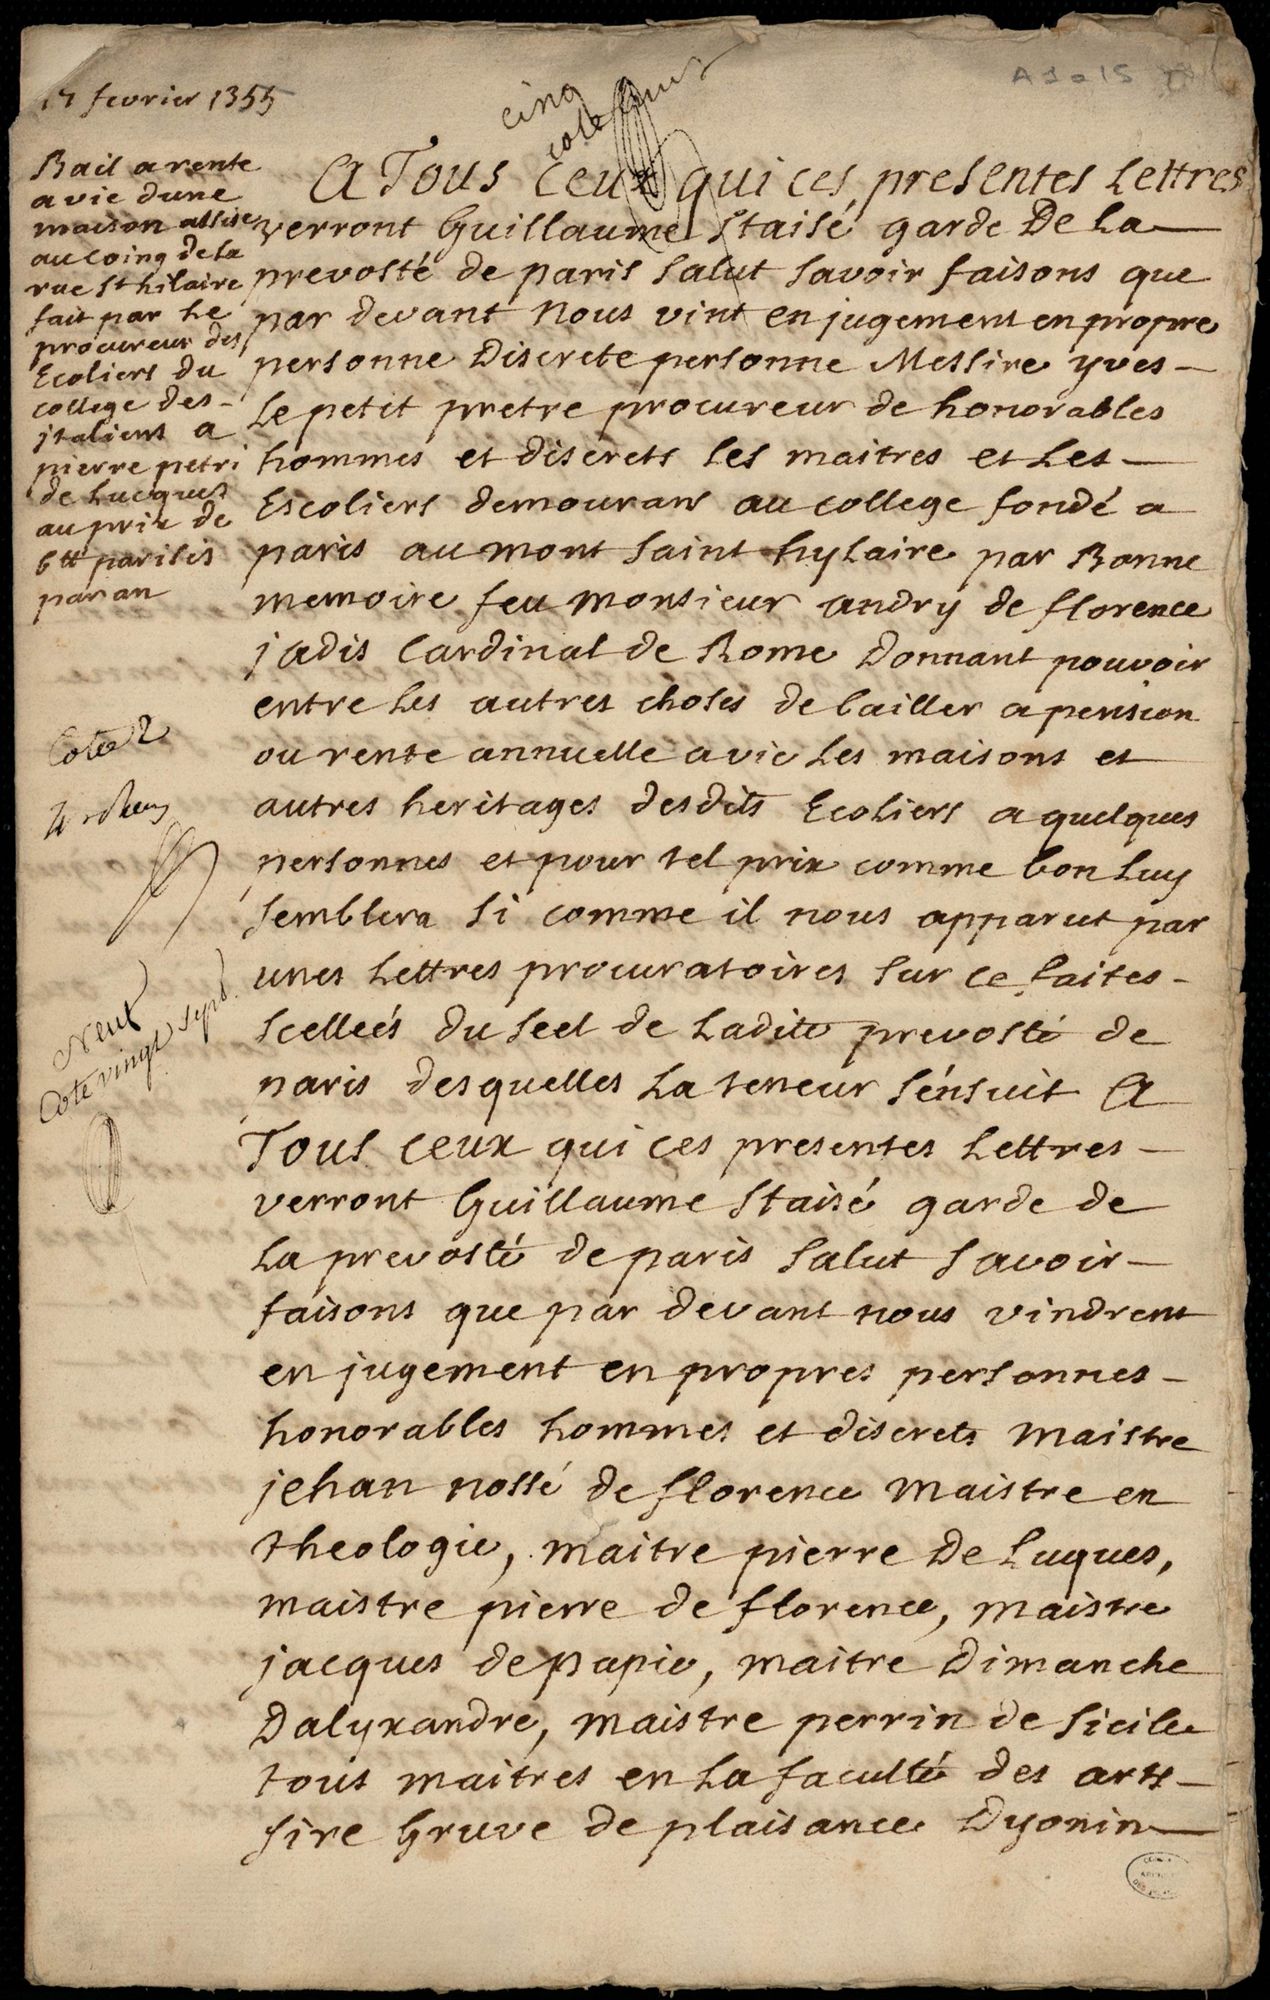 fevrier 1355
Bail a rente
a vie dune
maison assise
au coing de la
rue St hilaire
fait par le
procureur des
Ecoliers du
college des-
jtaliens a
pierre petri
de Lucques
au prix de
6tt parisis
par an
Cotte 2
Neuf
Cote vingt sept
cinq
cote
A Tous Ceux qui ces presentes Lettres
verront Guillaume Staisé garde De La
prevosté de paris Salut Savoir faisons que
par devant Nous vint en jugement en propre
personne Discrete personne Messire yves -
Le petit pretre procureur de honorables
hommes et discrets Les maitres et Les -
Escoliers demourans au college fondé a
paris au mont Saint hylaire par Bonne
memoire feu Monsieur andry de florence
jadis Cardinal de Rome Donnant pouvoir
entre Les autres choses de bailler a pension
ou rente annuelle a vie Les maisons et
autres heritages desdits Ecoliers a quelques
personnes et pour tel prix comme bon Luy
semblera Si comme il nous apparut par
unes Lettres procuratoires sur ce faites -
Scelleés du seel de Ladite prevosté de
paris desquelles La teneur sénsuit A
Tous ceux qui ces presentes Lettres -
verront Guillaume Staisé garde de
La prevosté de paris Salut Savoir -
faisons que par devant nous vindrent
en jugement en propres personnes -
honorables hommes et discrets Maistre
jehan nossé de florence Maistre en
theologie, maitre pierre De Luques,
maistre pierre de florence, Maistre
jacques de papie, maitre Dimanche
Dalyxandre, Maistre perrin de Sicile
tous maitres en La faculté des arts -
sire Gruve de plaisance Dyonin